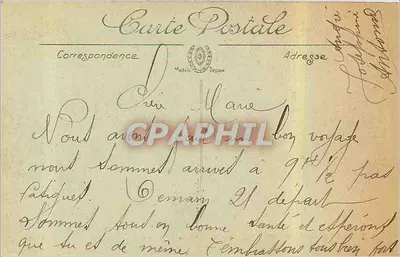 Carte Postale
Correspondance
Adresse
Chère Marie
Nous avons fait un bon voyage
nous sommes arrivés à 9 H ½ pas
fatigués. Demain 2i départ
Sommes tous en bonne santé et espérons
que tu es de même T'embrassons tous bien fort
CPAPHIL